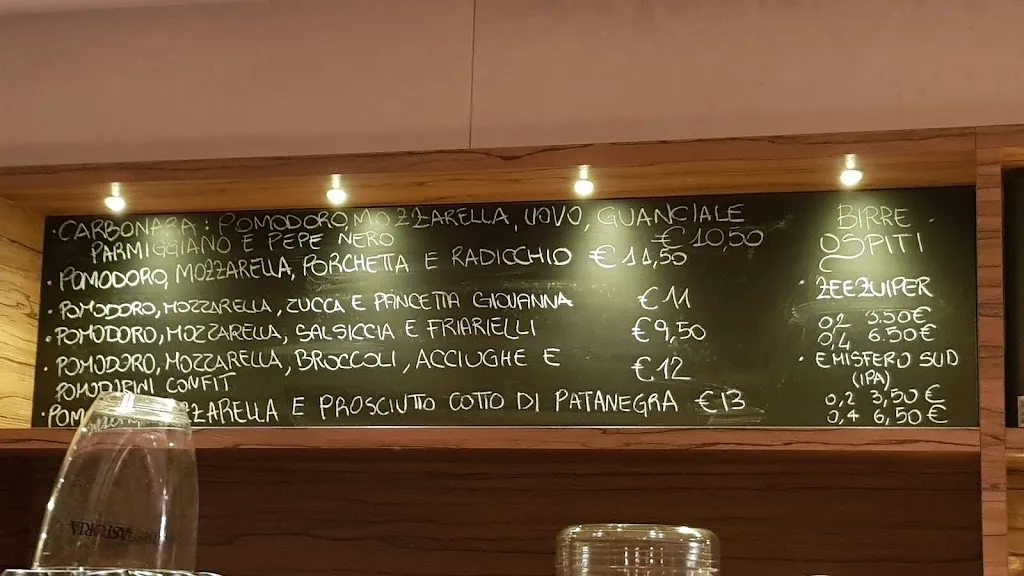 · CARBONARA: POMODORO, MOZZARELLA, UOVO, GUANCIALE
PARMIGGIANO E PEPE NERO € 10,50
· POMODORO, MOZZARELLA, PORCHETTA E RADICCHIO € 11,50
· POMODORO, MOZZARELLA, ZUCCA E PANCETTA GIOVANNA € 11
· POMODORO, MOZZARELLA, SALSICCIA E FRIARIELLI € 9,50
· POMODORO, MOZZARELLA, BROCCOLI, ACCIUGHE E € 12
POMODORINI CONFIT
MOZZARELLA E PROSCIUTTO COTTO DI PATANEGRA € 13
BIRRE
OSPITI
· ZEEZUIPER
0,2 3.50€
0,4 6.50€
· EMISFERO SUD
(IPA)
0,2 3,50 €
0,4 6,50 €